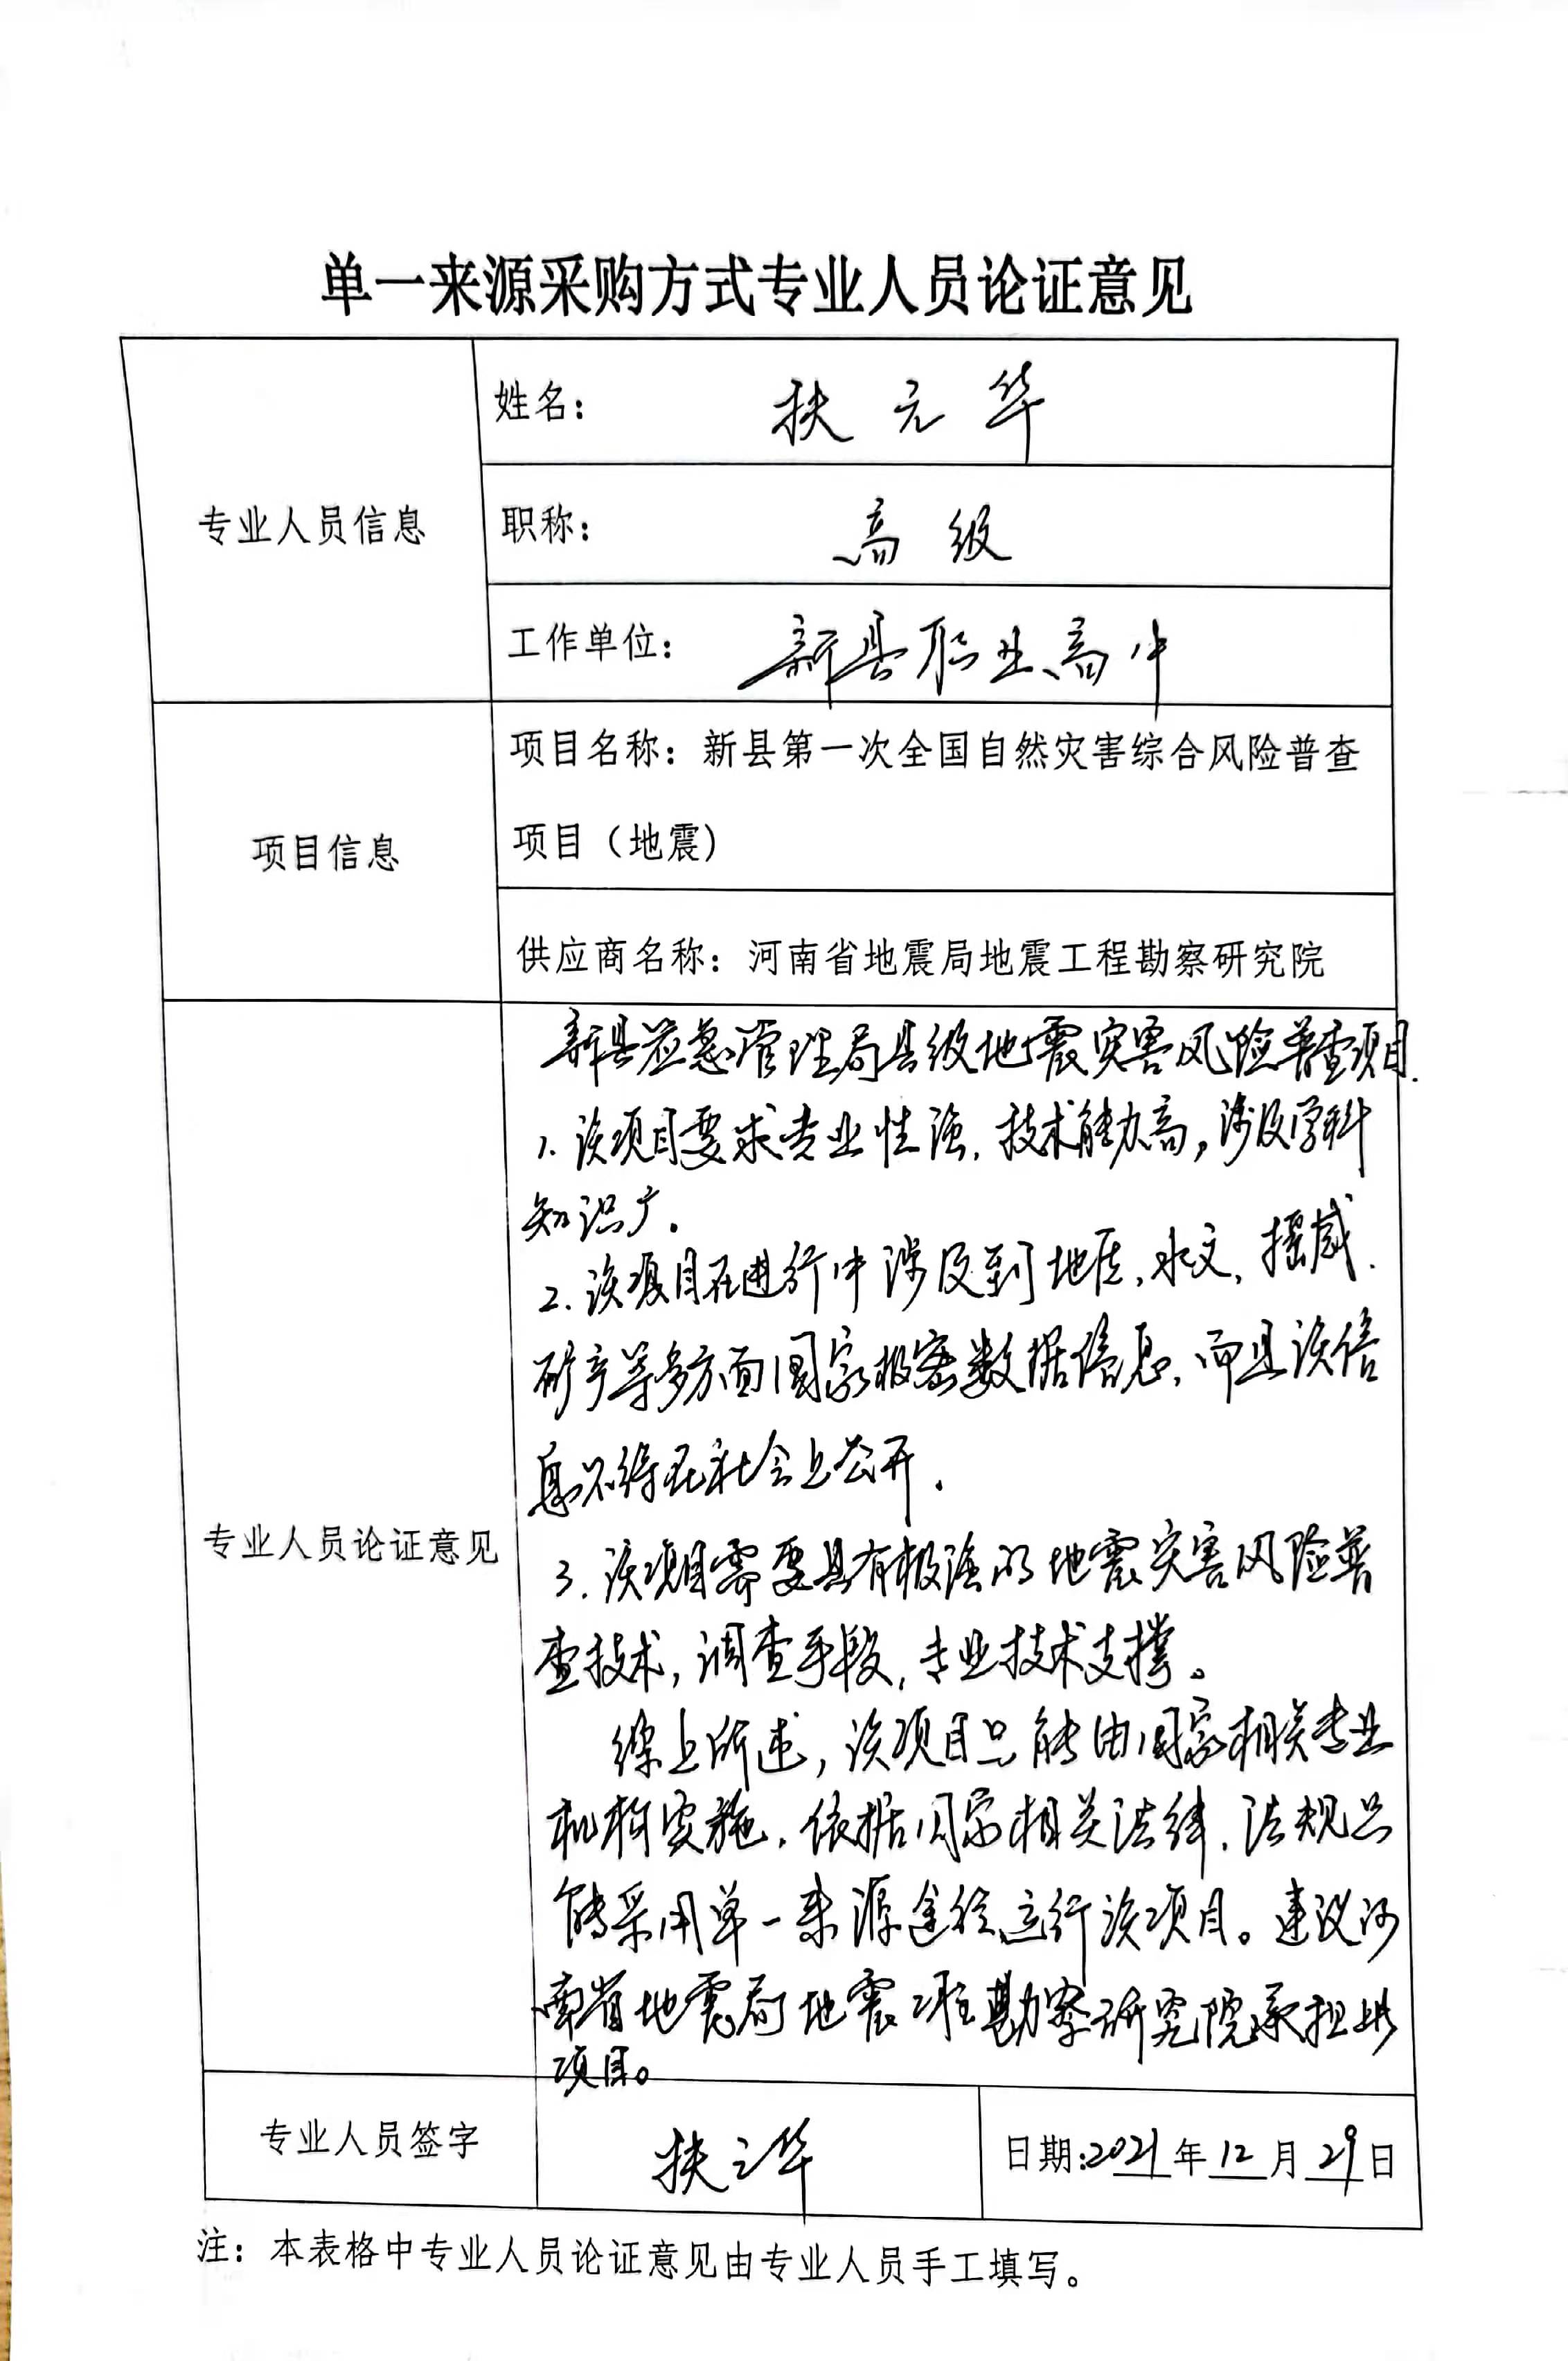 单一来源采购方式专业人员论证意见
专业人员信息
姓名： 扶元华
职称： 高级
工作单位： 新县职业高中
项目信息
项目名称：新县第一次全国自然灾害综合风险普查
项目（地震）
供应商名称：河南省地震局地震工程勘察研究院
专业人员论证意见
新县应急管理局县级地震灾害风险普查项目.
1. 该项目要求专业性强，技术能力高，涉及学科
知识广。
2. 该项目在进行中涉及到地质，水文，摇感.
矿产等多方面国家极密数据信息，而且该信
息不得在社会上公开.
3. 该项目需要具有极强的地震灾害风险普
查技术，调查手段，专业技术支撑。
综上所述，该项目只能由国家相关专业
机构实施，依据国家相关法律，法规只
能采用单一来源途径运行该项目。建议河
南省地震局地震工程勘察研究院承担此
项目。
专业人员签字
扶元华
日期：2021年12月29日
注：本表格中专业人员论证意见由专业人员手工填写。